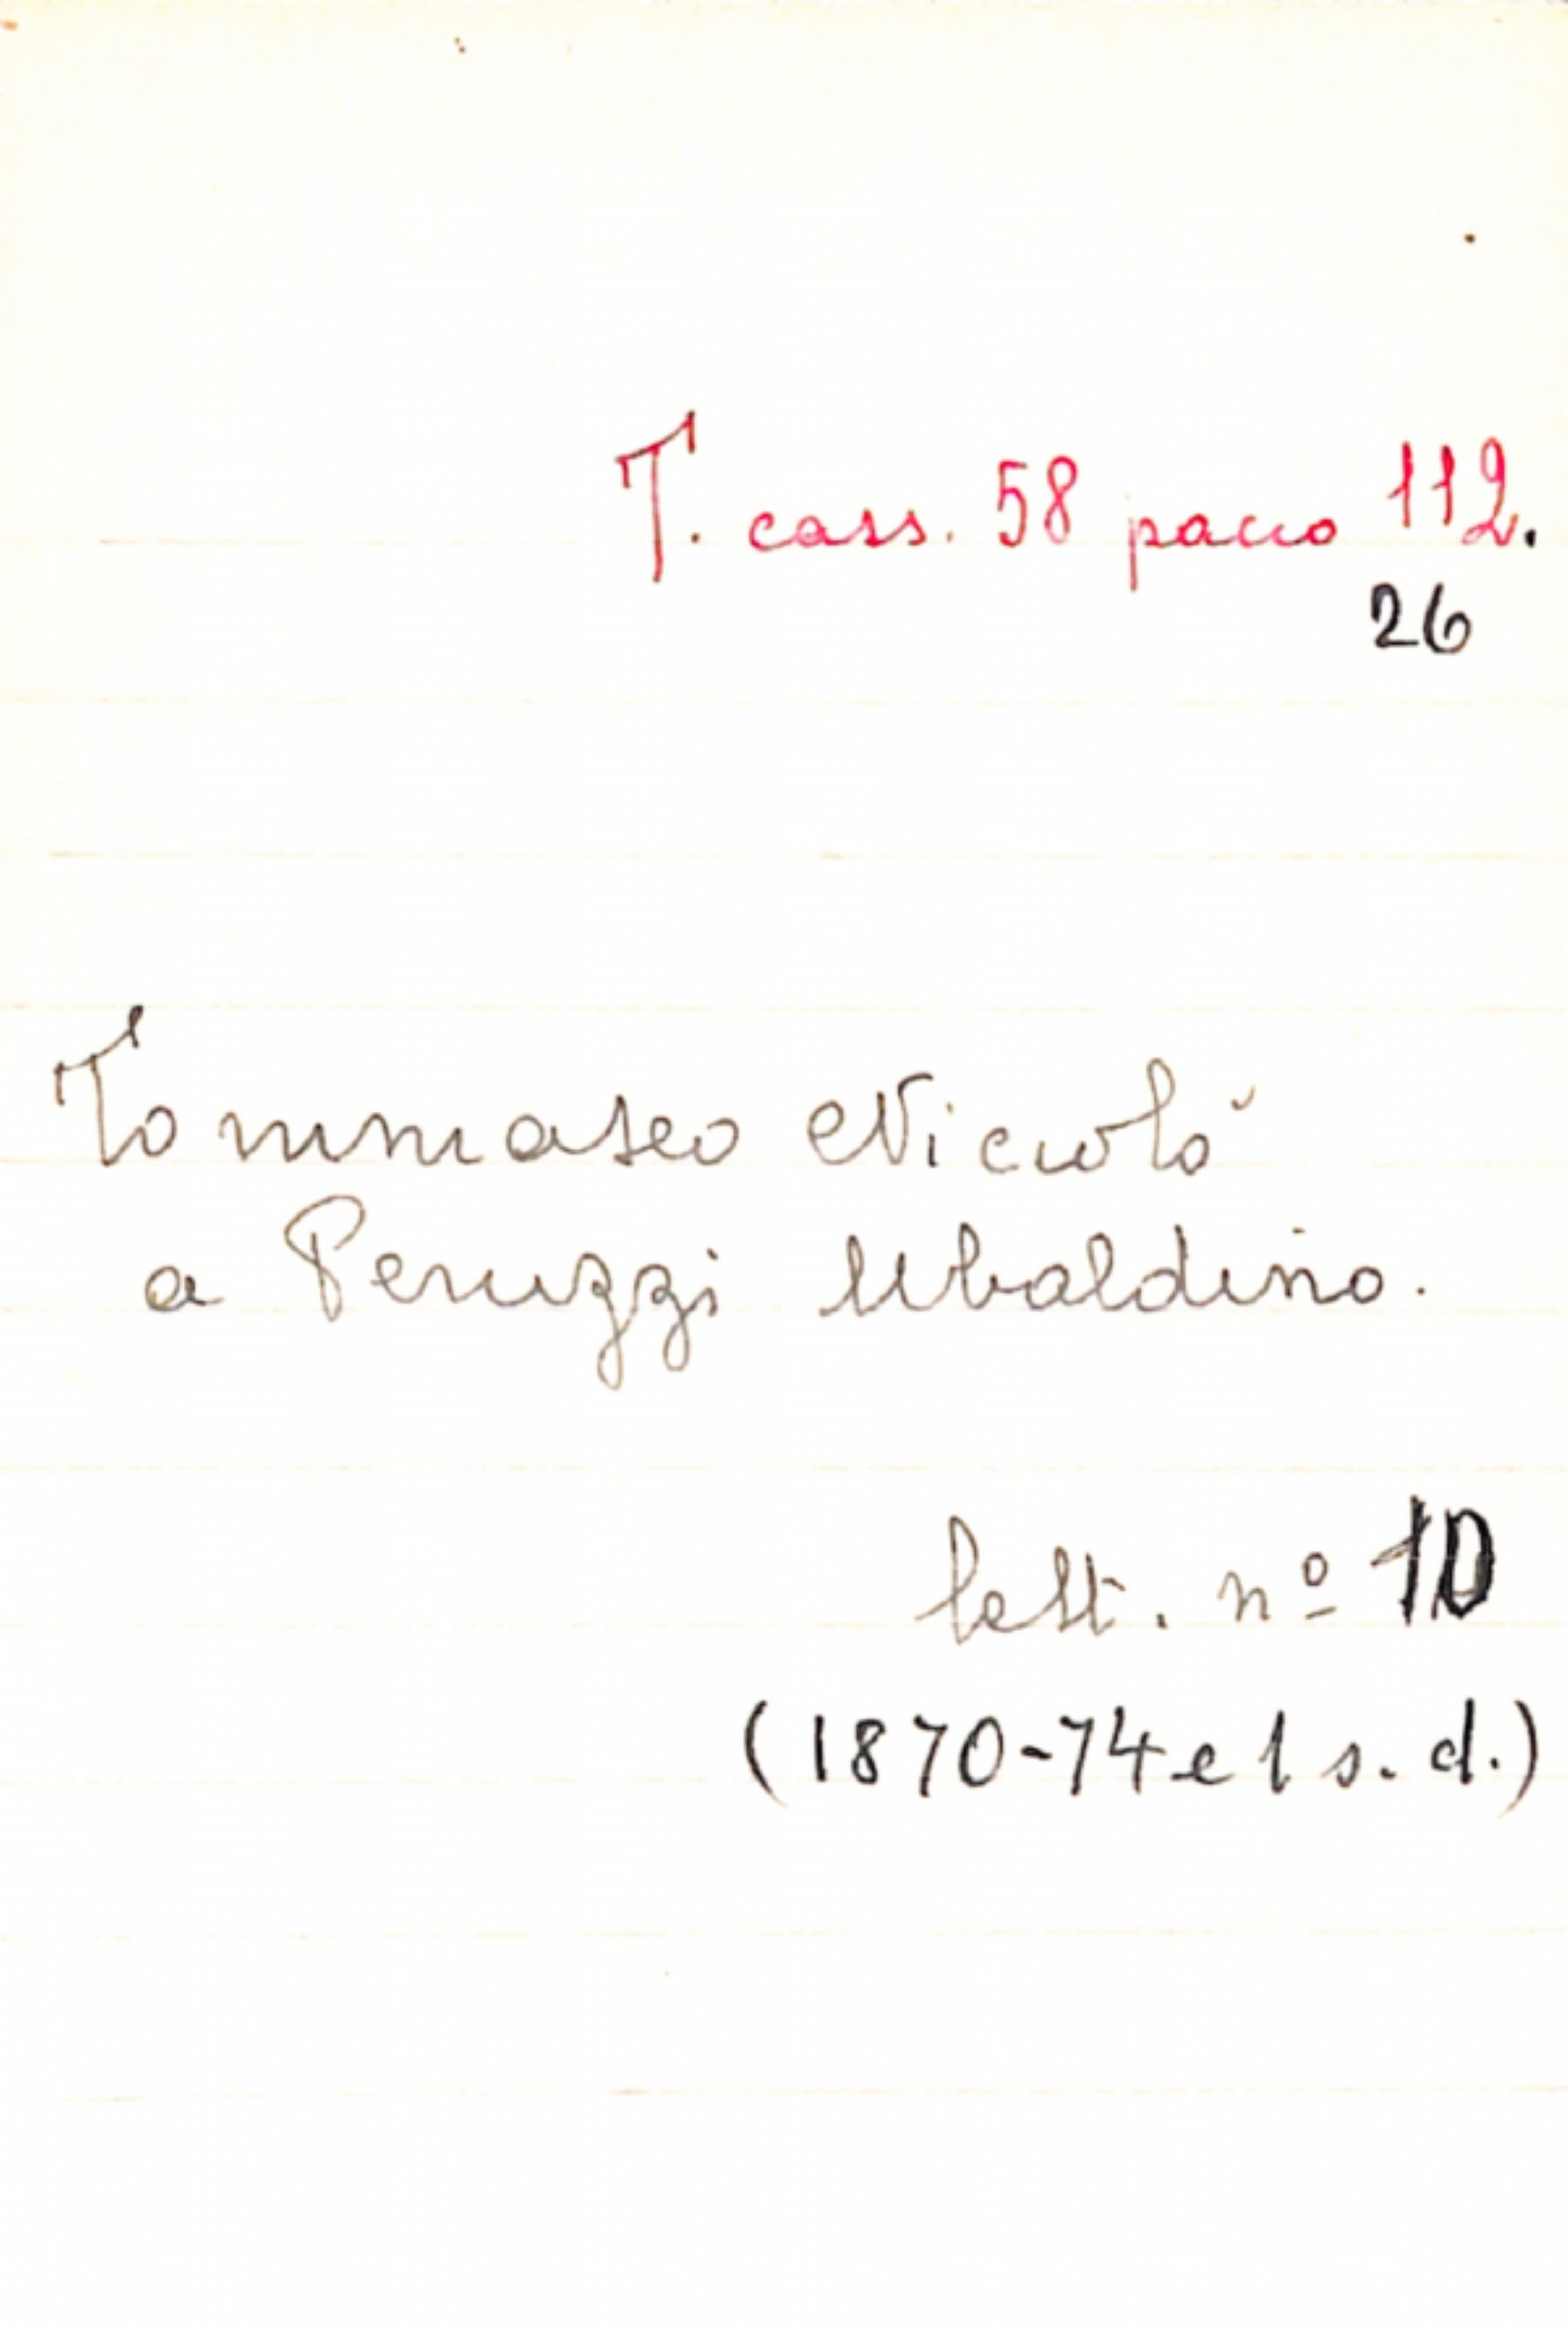 T. cass. 58 pacco 112.
26
Tommaseo Niccolò
a Peruzzi Ubaldino.
lett. nº 10
(1870-74 e 1 s. d.)